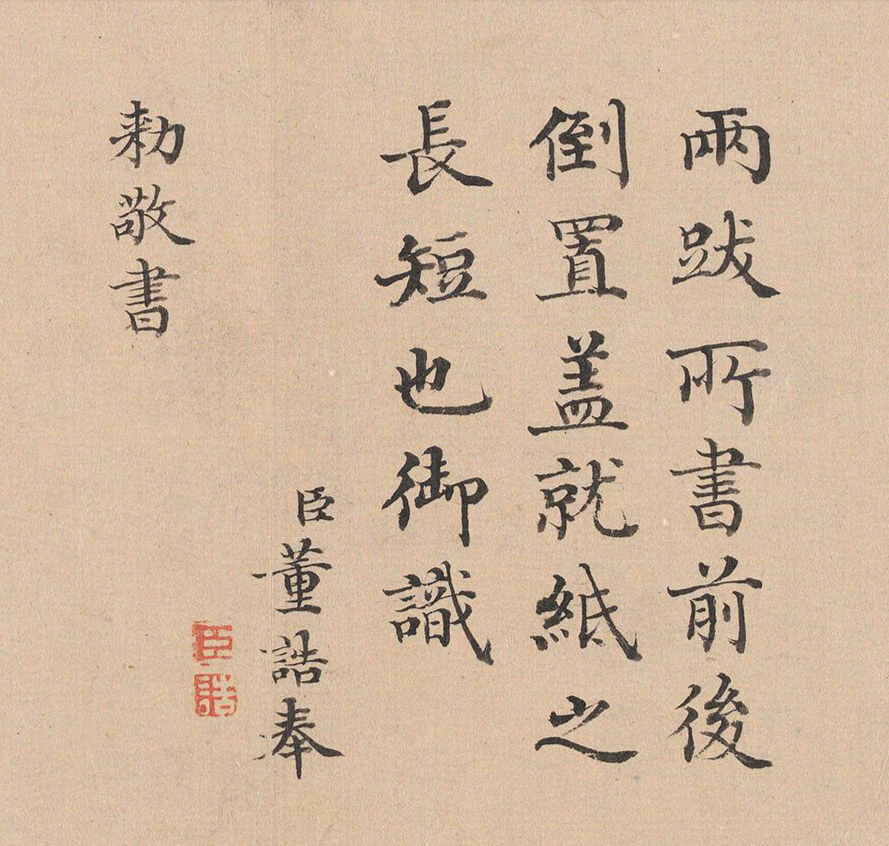 兩跋所書前後
倒置盖就紙之
長短也御識
臣董誥奉
勅敬書
臣
誥